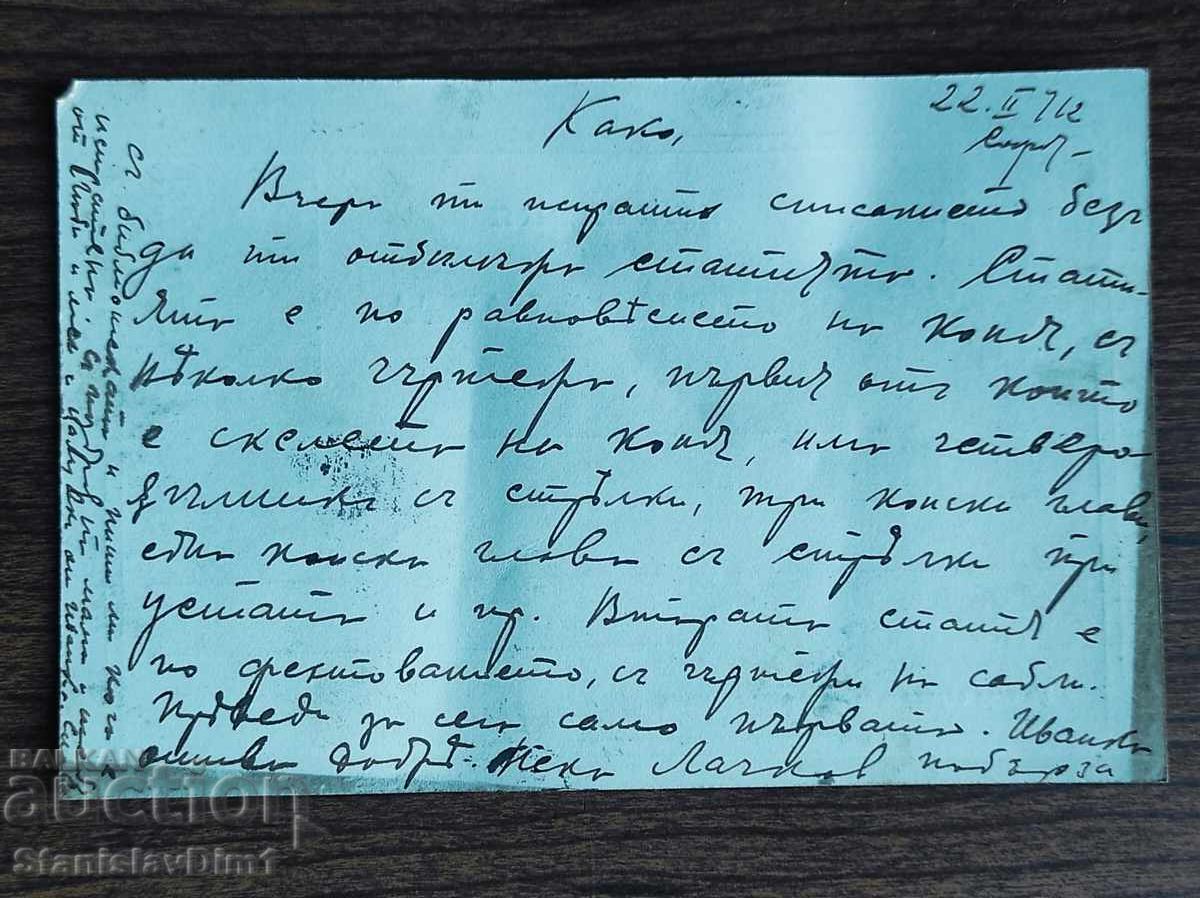 22. II 912
Како,
Вчера ти изпратихъ списанието безъ
да ти отбележа статията. Стати-
ята е по равновѣсието на коня, съ
нѣколко чъртежа, първия отъ които
е скелета на коня, има четверо-
ѫгълника съ стрѣлки, три конски глави,
една конска глава съ стрѣлки при
устата и пр. Втората статия е
по фехтованието, съ чъртежи на сабли.
Преведи за сега само първата. Иванка
отива добрѣ. Нека Лачков побърза
съ библиотеката и пиши ми кога
от и
BALKAN
auction
StanislavDim1